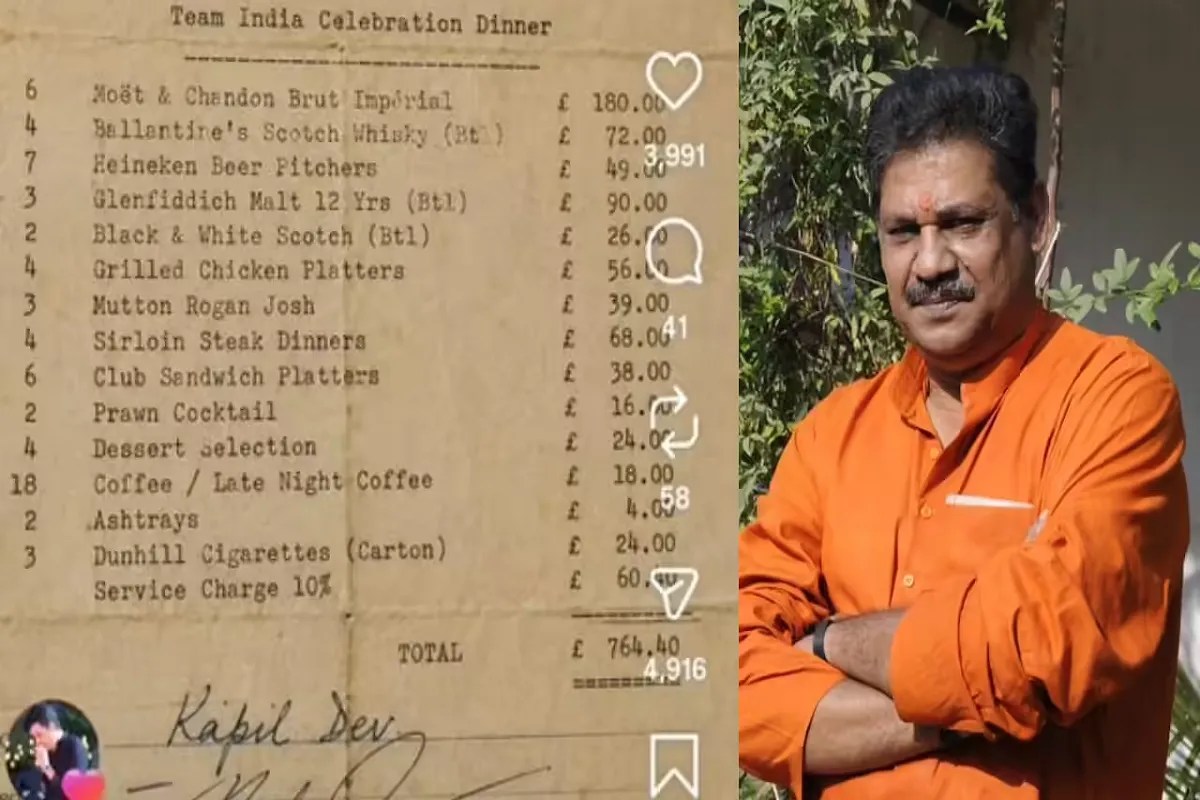 Team India Celebration Dinner
6 Moët & Chandon Brut Impérial £ 180.00
4 Ballantine's Scotch Whisky (Btl) £ 72.00
7 Heineken Beer Pitchers £ 49.00
3 Glenfiddich Malt 12 Yrs (Btl) £ 90.00
2 Black & White Scotch (Btl) £ 26.00
4 Grilled Chicken Platters £ 56.00
3 Mutton Rogan Josh £ 39.00
4 Sirloin Steak Dinners £ 68.00
6 Club Sandwich Platters £ 38.00
2 Prawn Cocktail £ 16.00
4 Dessert Selection £ 24.00
18 Coffee / Late Night Coffee £ 18.00
2 Ashtrays £ 4.00
3 Dunhill Cigarettes (Carton) £ 24.00
Service Charge 10% £ 60.40
TOTAL £ 764.40
Kapil Dev
3,991
41
58
4,916